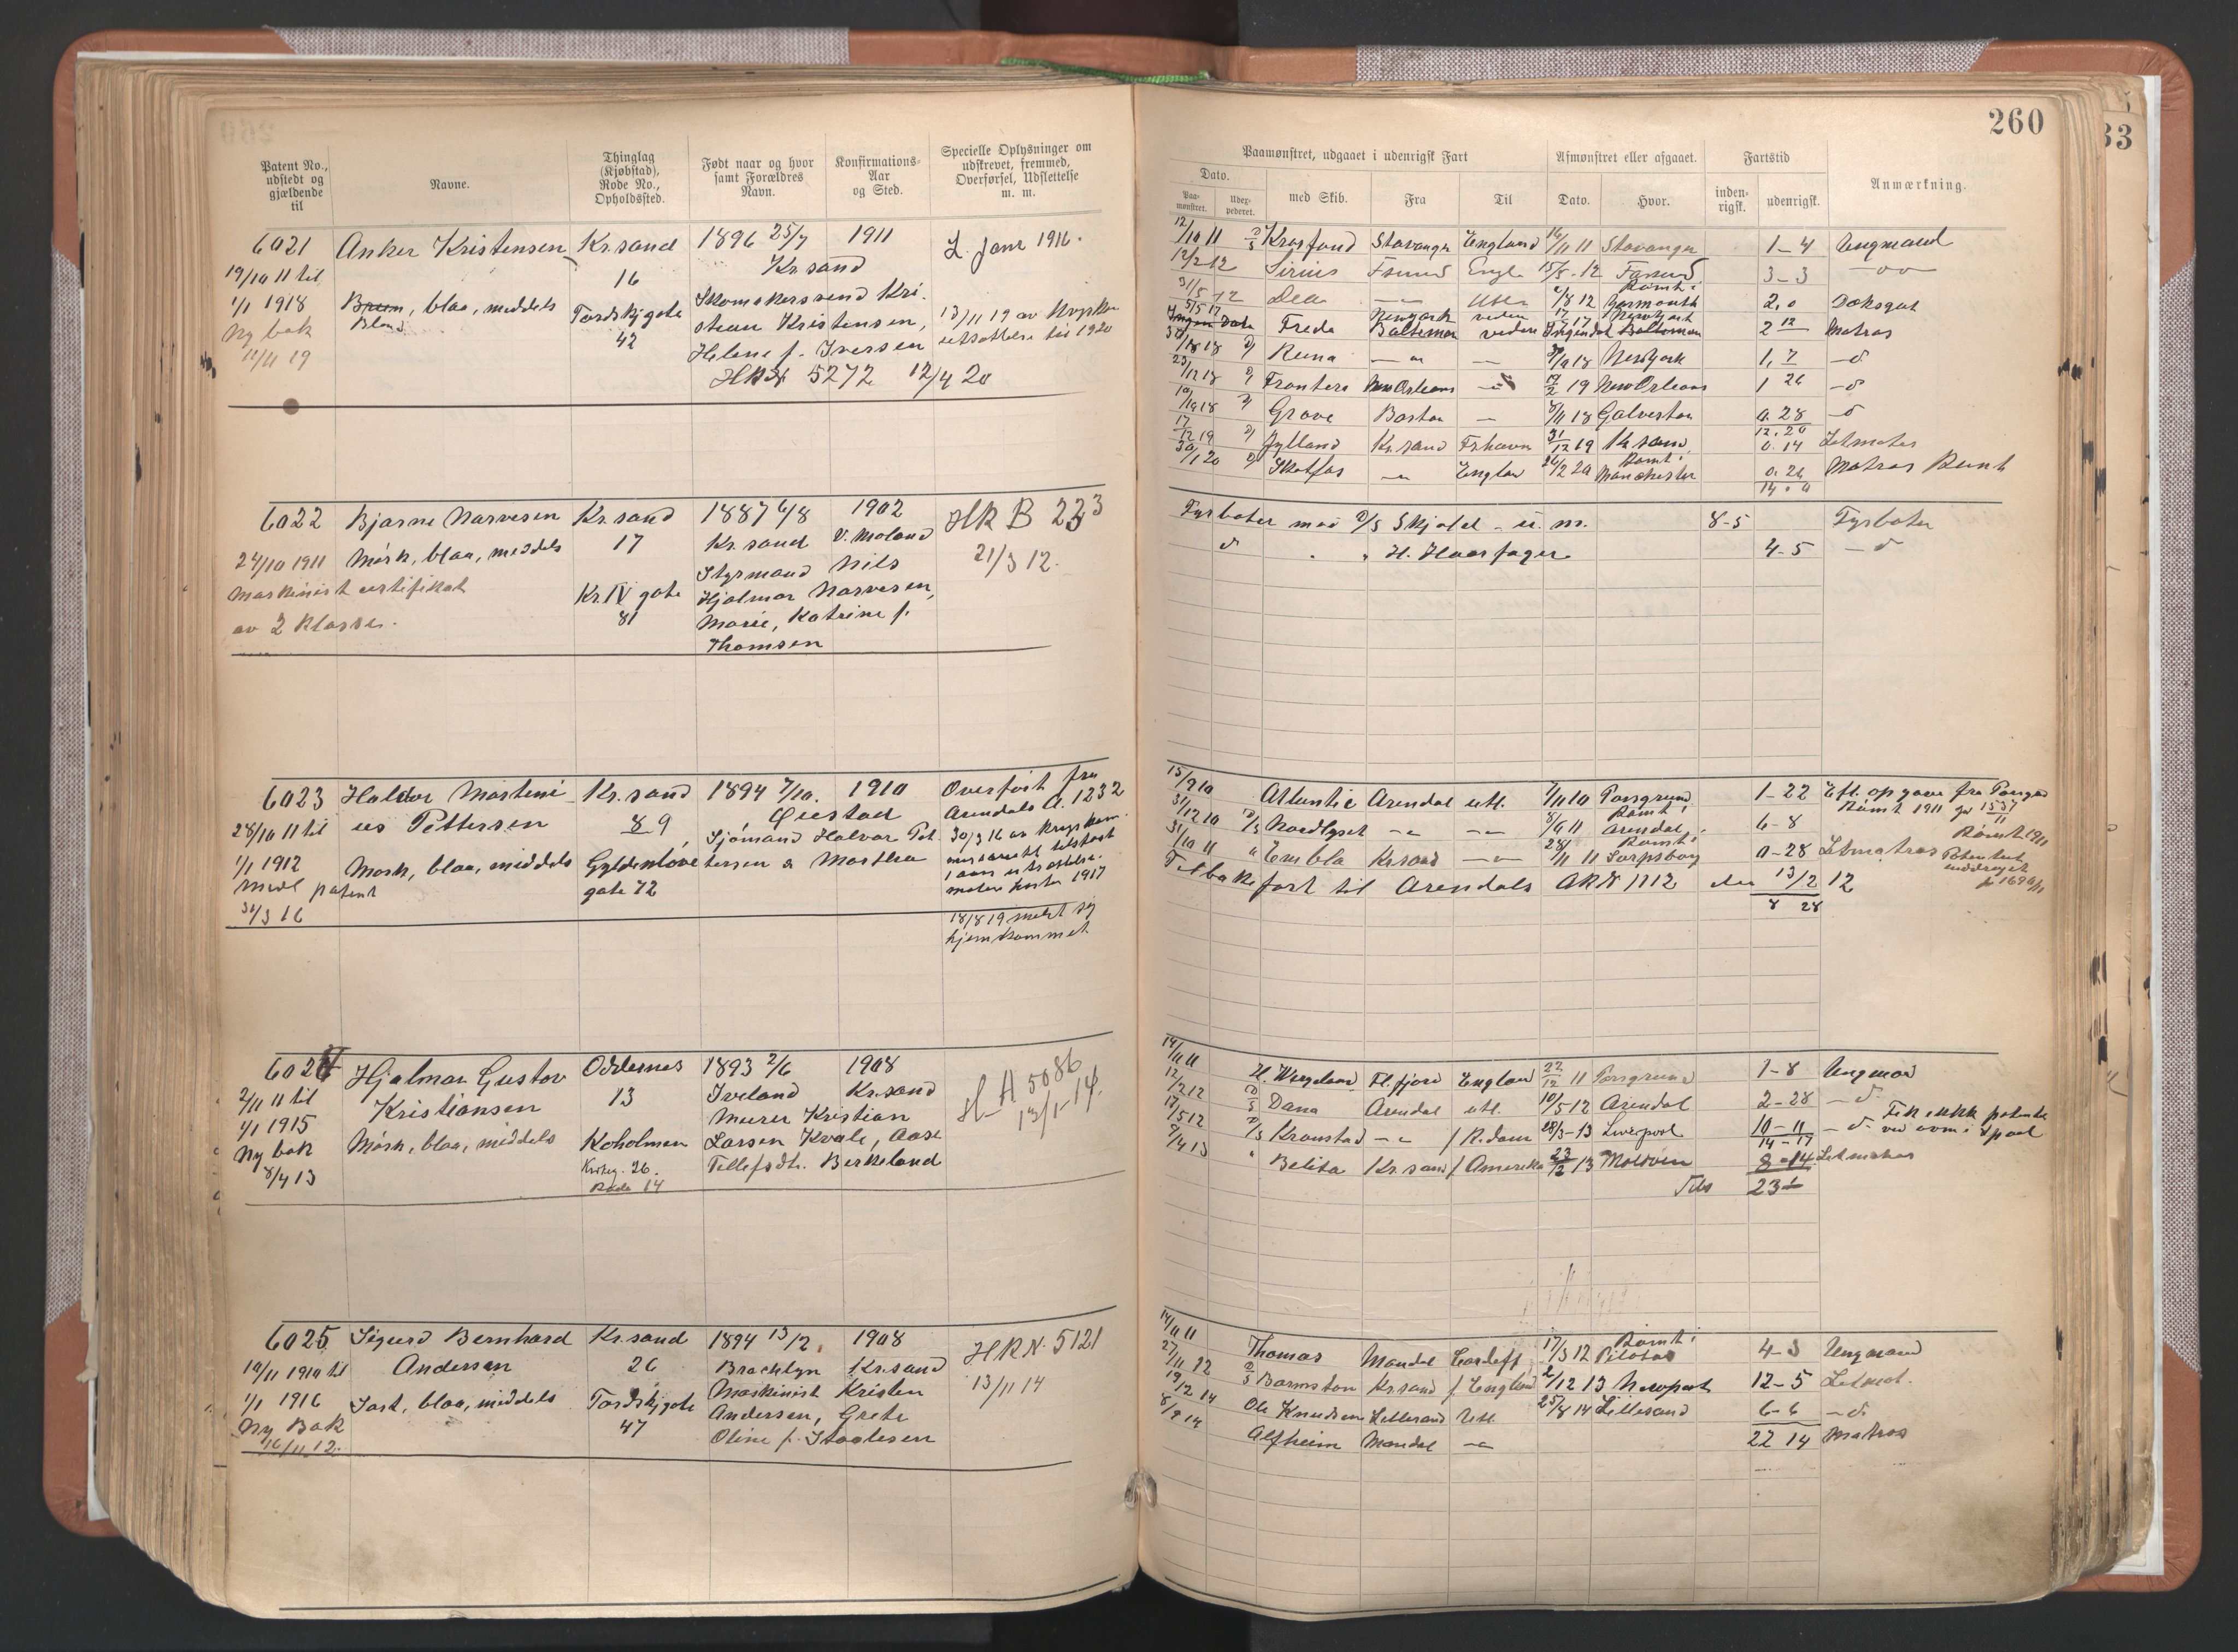 260
Patent No., udstedt og gjældende til
Navne.
Thinglag (Kjøbstad), Rode No., Opholdssted.
Født naar og hvor samt Forældres Navn.
Konfirmations-Aar og Sted.
Specielle Oplysninger om udskrevet, fremmed, Overførsel, Udslettelse m. m.
6021 Anker Kristensen Kr.sand 1896 25/7 1911 L. Janr 1916.
19/10 11 til 16 Kr.sand
1/1 1918 Brun, blaa, middels Tordskjgate Skomakersvend Kri-
Ny bok Blond 42 stian Kristensen, 13/11 19 av Krysko
11/11 19 Helene f. Iversen utsættelse til 1920
HR N 5272 12/4 20
6022 Bjarne Narvesen Kr.sand 1887 6/8 1902 HR B 223
24/10 1911 Mørk, blaa, middels 17 Kr.sand V. Moland 21/3 12.
Maskinist certifikat Styrmand Nils
av 2 Klasse. Kr. IV gate Hjalmar Narvesen,
81 Marie, Katrine f.
Thomsen
6023 Haldor Martini- Kr.sand 1894 7/10. 1910 Overført fra
us Pettersen 89 Øiestad Arendals A. 1232
28/10 11 til Sjømand Halvor Pet- 30/3 16 av Kryskom
1/1 1912 Mørk, blaa, middels Gyldenløve tersen & Marthea
patent gate 72 1 aars utsættelse.
31/3 16 møter høsten 1917
18/8 19 meldt sig
hjemkommet
6024 Hjalmar Gustav Oddernes 1893 2/6 1908 H A 5086
2/11 11 til Kristiansen 13 Iveland Kr.sand 13/1-14.
1/1 1915 Murer Kristian
Ny bok Mørk, blaa, middels Koholmen Larsen Kvale, Aase
8/4 13 26. Tellefsdtr. Berkeland
Rode 14
6025 Sigurd Bernhard Kr.sand 1894 13/12. 1908 HR N. 5121
14/11 1910 til Andersen 26 Brooklyn Kr.sand 13/11 14
1/1 1916 Sort, blaa, middels Tordskjgate Maskinist Kristen
Ny Bok 47 Andersen, Grete
16/11 12. Oline f. Staalesen
Paamønstret, udgaaet i udenrigsk Fart
Afmønstret eller afgaaet.
Fartstid
Anmærkning.
Dato.
Paamønstret.
Udexpederet.
med Skib.
Fra
Til
Dato.
Hvor.
indenrigsk.
udenrigsk.
12/10 11 D/S Krosfond Stavanger England 16/11 11 Stavanger 1-4 Ungmand
12/2 12 Sirius Fsund Engl 15/5-12 Farsund 3-3
31/5 12 Dea Utl 2/8 12 Rømt i Yarmouth 2,0 Dæksgut
Freda New York Baltimor 2 12 Matros
30/8 18 Reina 9/9 18 New York 1, 7
23/12 18 Frontera New Orleans 19/2 19 New Orleans 1 26
10/10 18 Grove Boston 8/11 18 Galveston 0.28
12.20
17/12 19 Jylland Kr.sand Frhavn 31/12 19 Kr.sand 0.14 Letmatros
30/1 20 Skotfos England 26/2 20 Rømt i Manchester 0.26 Matros Rømt
14.0
Fyrbøter med D/S Skjold - u. m. 8-5 Fyrbøter
" H. Haarfager 4-5
15/9 10 Atlantic Arendal utl. 7/11 10 Porsgrund 1-22 Eft. opgave fra Porsgrd
31/12 10 D/S Nordlyset 8/6 11 Rømt i Arendal 6-8 Rømt 1911 1537/11
31/10 11 " Embla Kr.sand 28/11 11 Rømt i Sarpsborg 0-28 Letmatros Patentet
Tilbakeført til Arendals AR N 1112 den 13/2 12
8 28
14/11 11 H. Wergeland Fl.fjord England 22/12 11 Porsgrund 1-8 Ungmand
12/2 12 D/S Dana Arendal utl. 10/5-12 Arendal 2-28
17/5 12 D/S Kronstad / R.dam 28/3-13 Liverpool 10-11 Fik ikke patentet
14-17
9/4 13 " Belita Kr.sand / Amerika 23/12 13 Moldøen 8-14 Letmatros
Tils 23
14/11 11 Thomas Mandal Cardiff 17/3 12 Rømt i Pilotas 4-3 Ungmand
27/11 12 D/S Barmston Kr.sand / England 2/12 13 Newport 12-5 Letmat.
19/2 14 Ole Knudsen Lillesand Utl 25/8 14 Lillesand 6-6
8/9 14 Alfheim Mandal 22 14 Matros